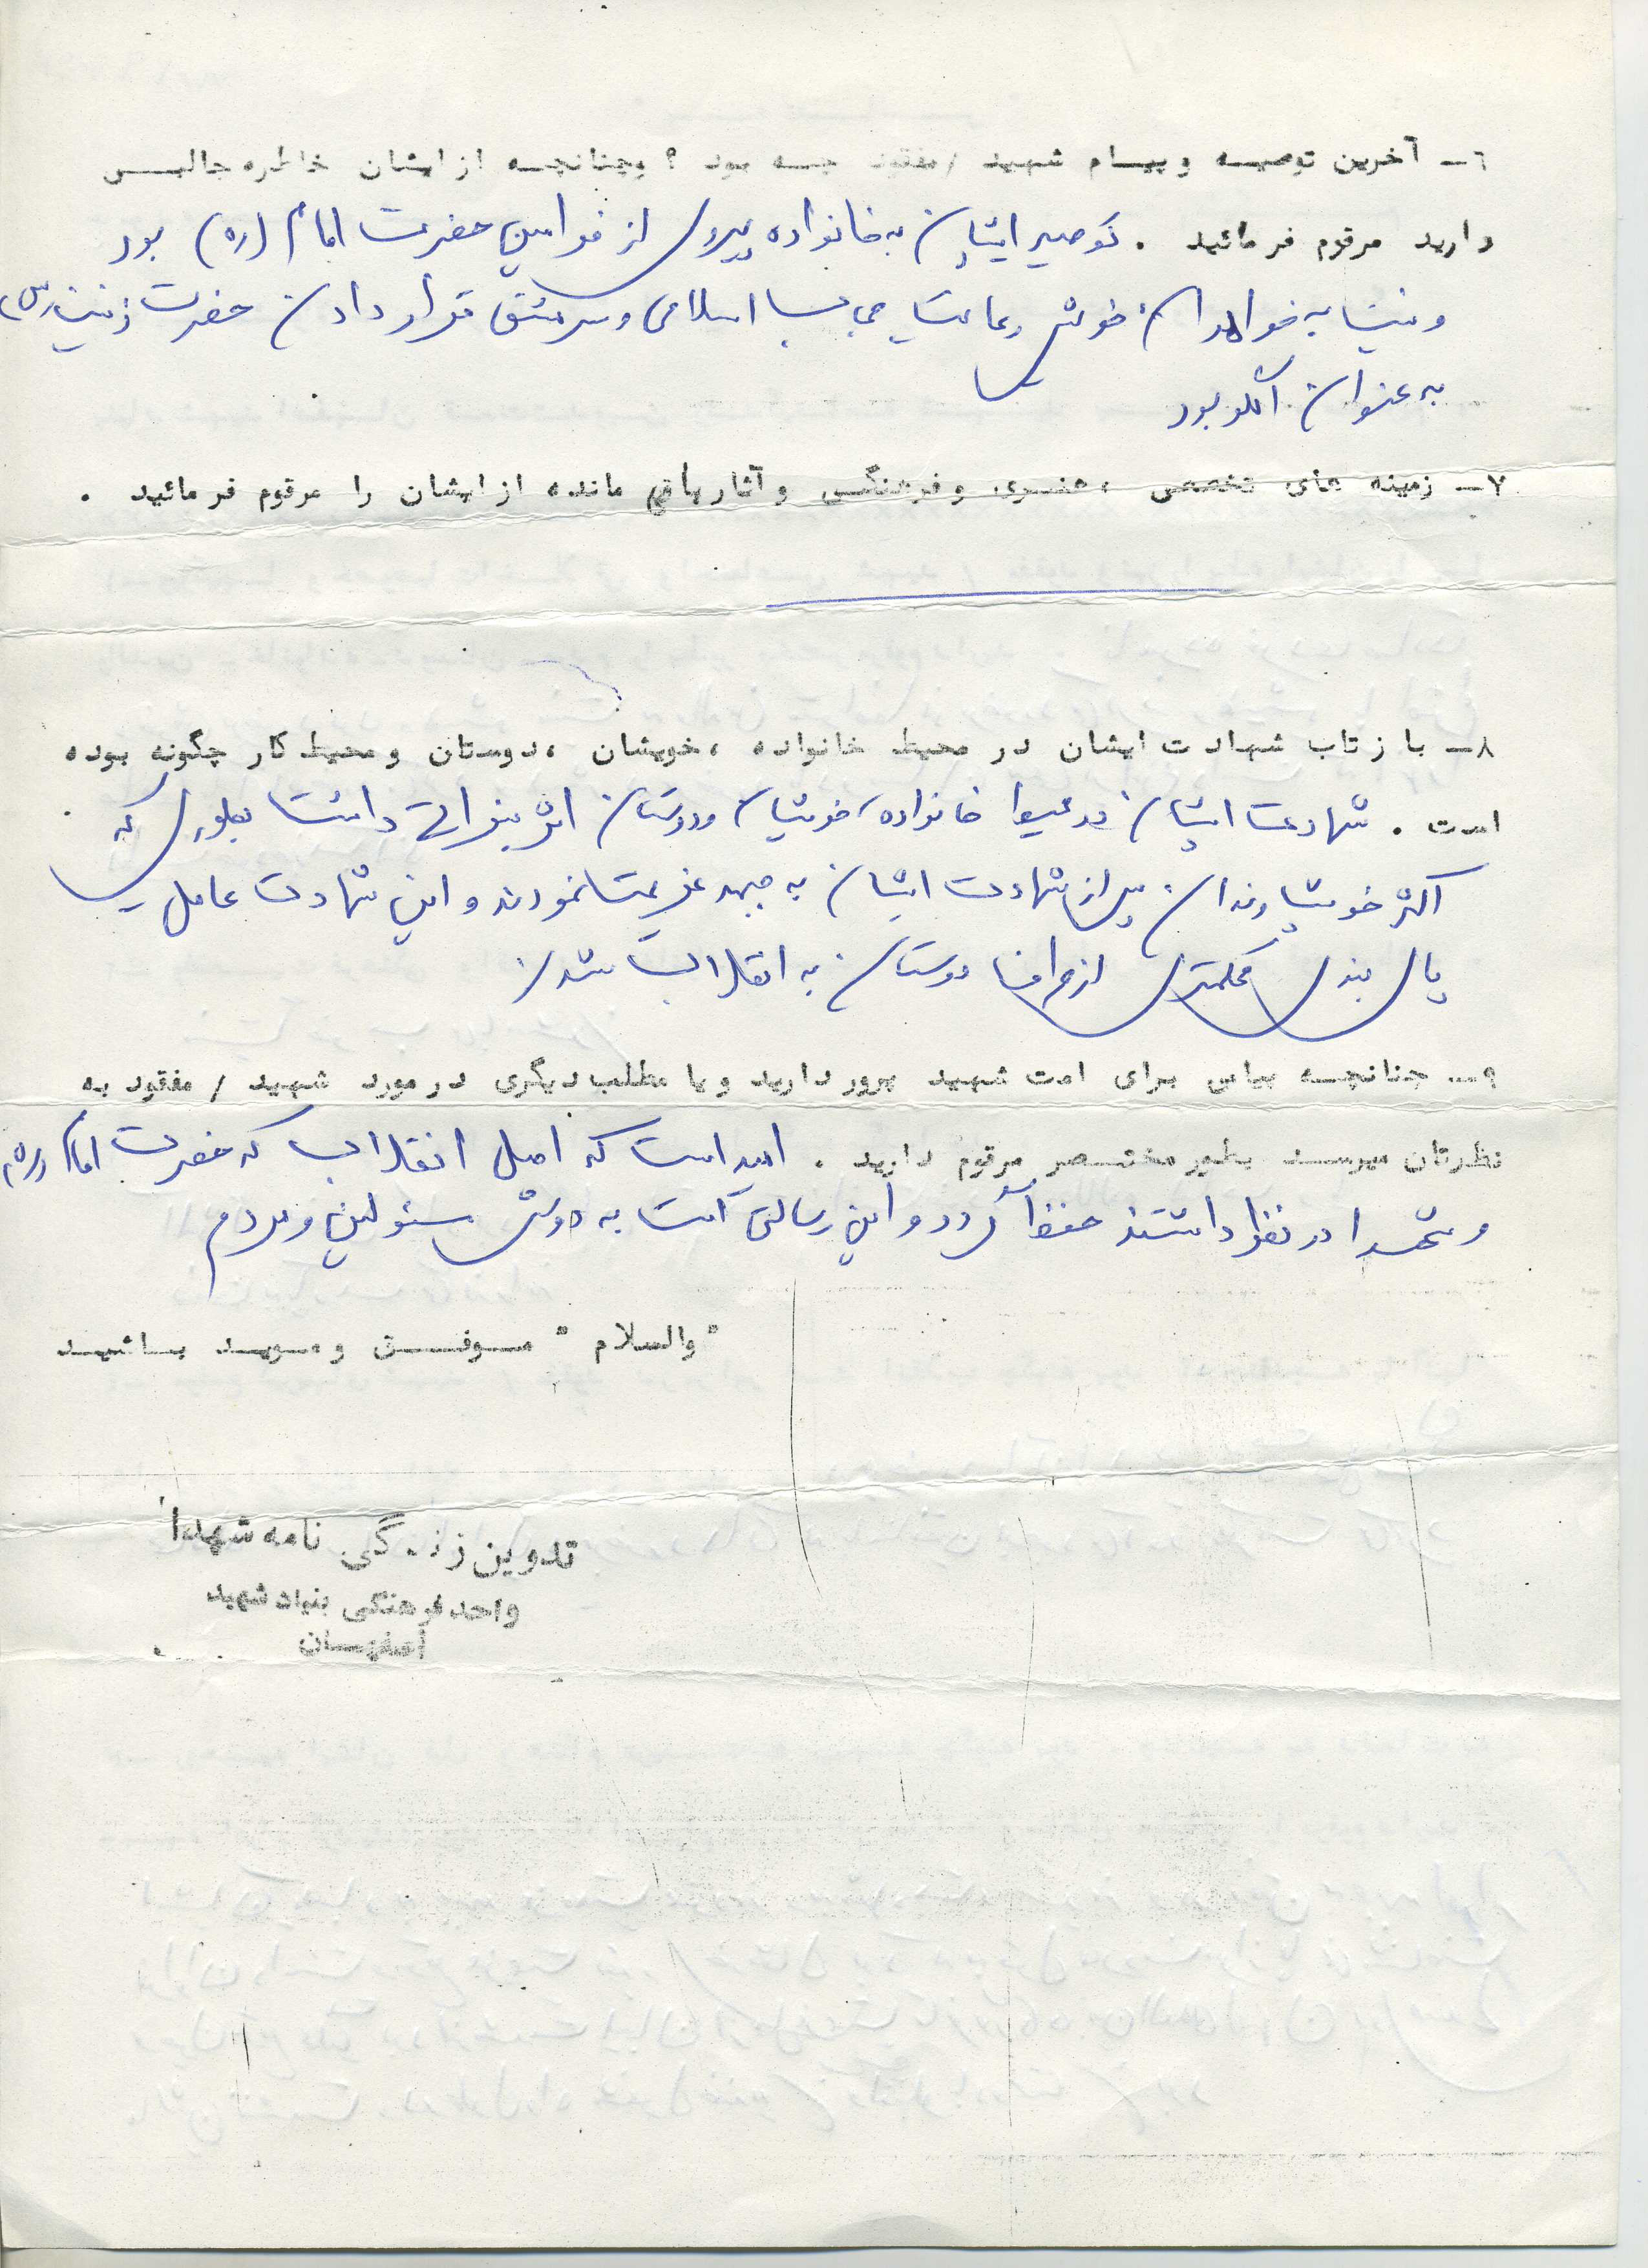 ٦ـ آخرین توصیه و پیام شهید / مفقود چه بود ؟ وچنانچه از ایشان خاطره جالبی
دارید مرقوم فرمائید . توصیه ایشان به خانواده پیروی از فرامین حضرت امام (ره) بود
و نسبت به خواهران خویش رعایت حجاب اسلامی و سرمشق قرار دادن حضرت زینب (س)
به عنوان الگو بود
٧ـ زمینه های تخصصی ، هنری و فرهنگی و آثار باقی مانده از ایشان را مرقوم فرمائید .
٨ـ بازتاب شهادت ایشان در محیط خانواده ، خویشان ، دوستان و محیط کار چگونه بوده
است . شهادت ایشان در محیط خانواده، خویشان و دوستان اثر بسزائی داشت بطوری که
اکثر خویشاوندان پس از شهادت ایشان به جبهه عزیمت نمودند و این شهادت عامل
پای بندی محکمتری از طرف دوستان به انقلاب شدن
٩ـ چنانچه پیامی برای امت شهید پرور دارید و یا مطلب دیگری در مورد شهید / مفقود به
نظرتان میرسد بطور مختصر مرقوم دارید . امید است که اصل انقلاب که حضرت امام (ره)
و شهدا در نظر داشتند حفظ گردد و این رسالتی است به دوش مسئولین و مردم
" والسلام " موفق و موید باشید
تدوین زندگی نامه شهدا
واحد فرهنگی بنیاد شهید
اصفهان